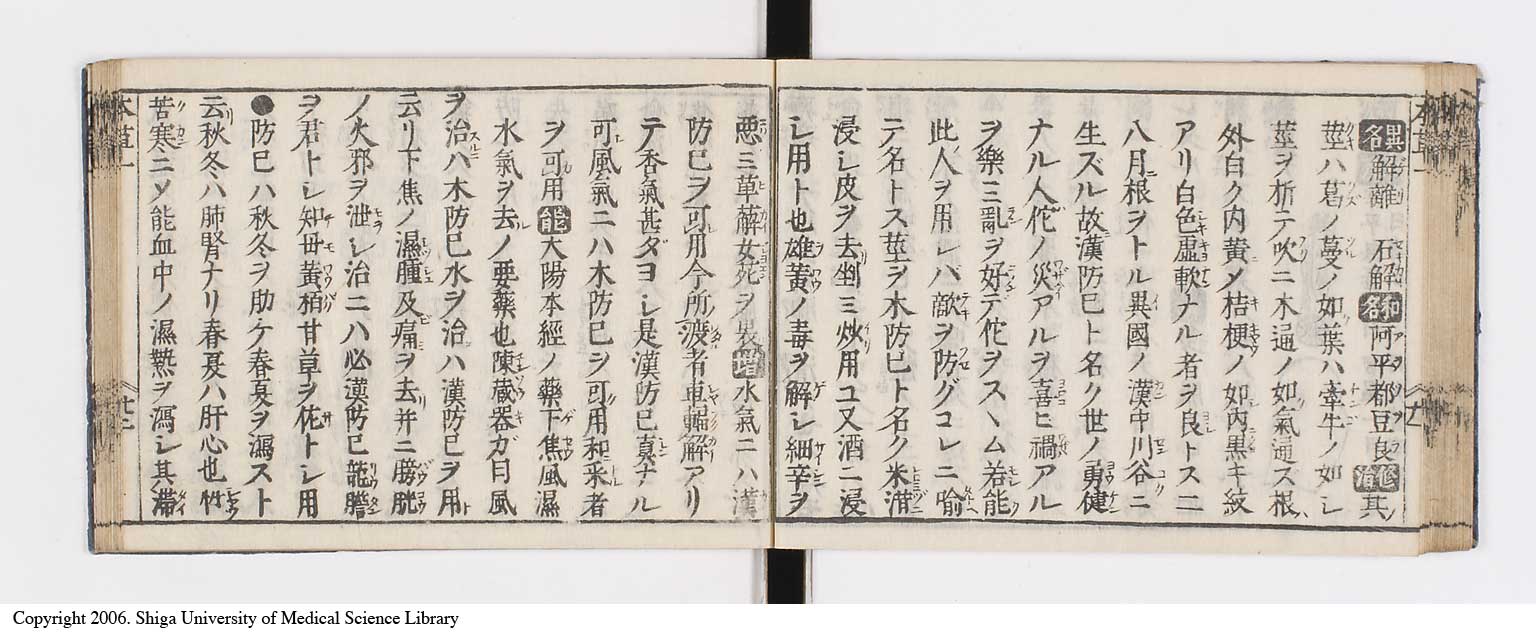 異名 解離 石解 和名 阿平都豆良 修治 其
莖ハ葛ノ蔓ノ如葉ハ牽牛ノ如シ
莖ヲ折テ吹ニ木通ノ如氣通ス根
外白ク内黄メ桔梗ノ如内黒キ紋
アリ白色虚軟ナル者ヲ良トス二
八月根ヲトル異國ノ漢中川谷ニ
生ズル故漢防已ト名ク世ノ勇健
ナル人佗ノ災アルヲ喜ヒ禍アル
ヲ樂ミ亂ヲ好テ佗ヲスヽム若能
此人ヲ用レバ敵ヲ防グコレニ喩
テ名トス莖ヲ木防已ト名ク米泔
浸シ皮ヲ去剉ミ炒用ユ又酒ニ浸
シ用ト也雄黄ノ毒ヲ解シ細辛ヲ
悪ミ萆薢女菀ヲ畏 増 水氣ニハ漢
防已ヲ可用今所渡者車輻解アリ
テ香氣甚ダヨシ是漢防已真ナル
可風氣ニハ木防已ヲ可用和采者
ヲ可用 能 大陽本經ノ藥下焦風濕
水氣ヲ去ノ要藥也陳蔵器ガ曰風
ヲ治ハ木防已水ヲ治ハ漢防已ヲ用
云リ下焦ノ濕腫及痛ヲ去并ニ膀胱
ノ火邪ヲ泄シ治ニハ必漢防已龍膽
ヲ君トシ知母黄栢甘草ヲ佐トシ用
●防已ハ秋冬ヲ助ケ春夏ヲ瀉スト
云秋冬ハ肺腎ナリ春夏ハ肝心也性
苦寒ニソ能血中ノ濕熱ヲ瀉シ其滞
本草一
廿三
Copyright 2006. Shiga University of Medical Science Library